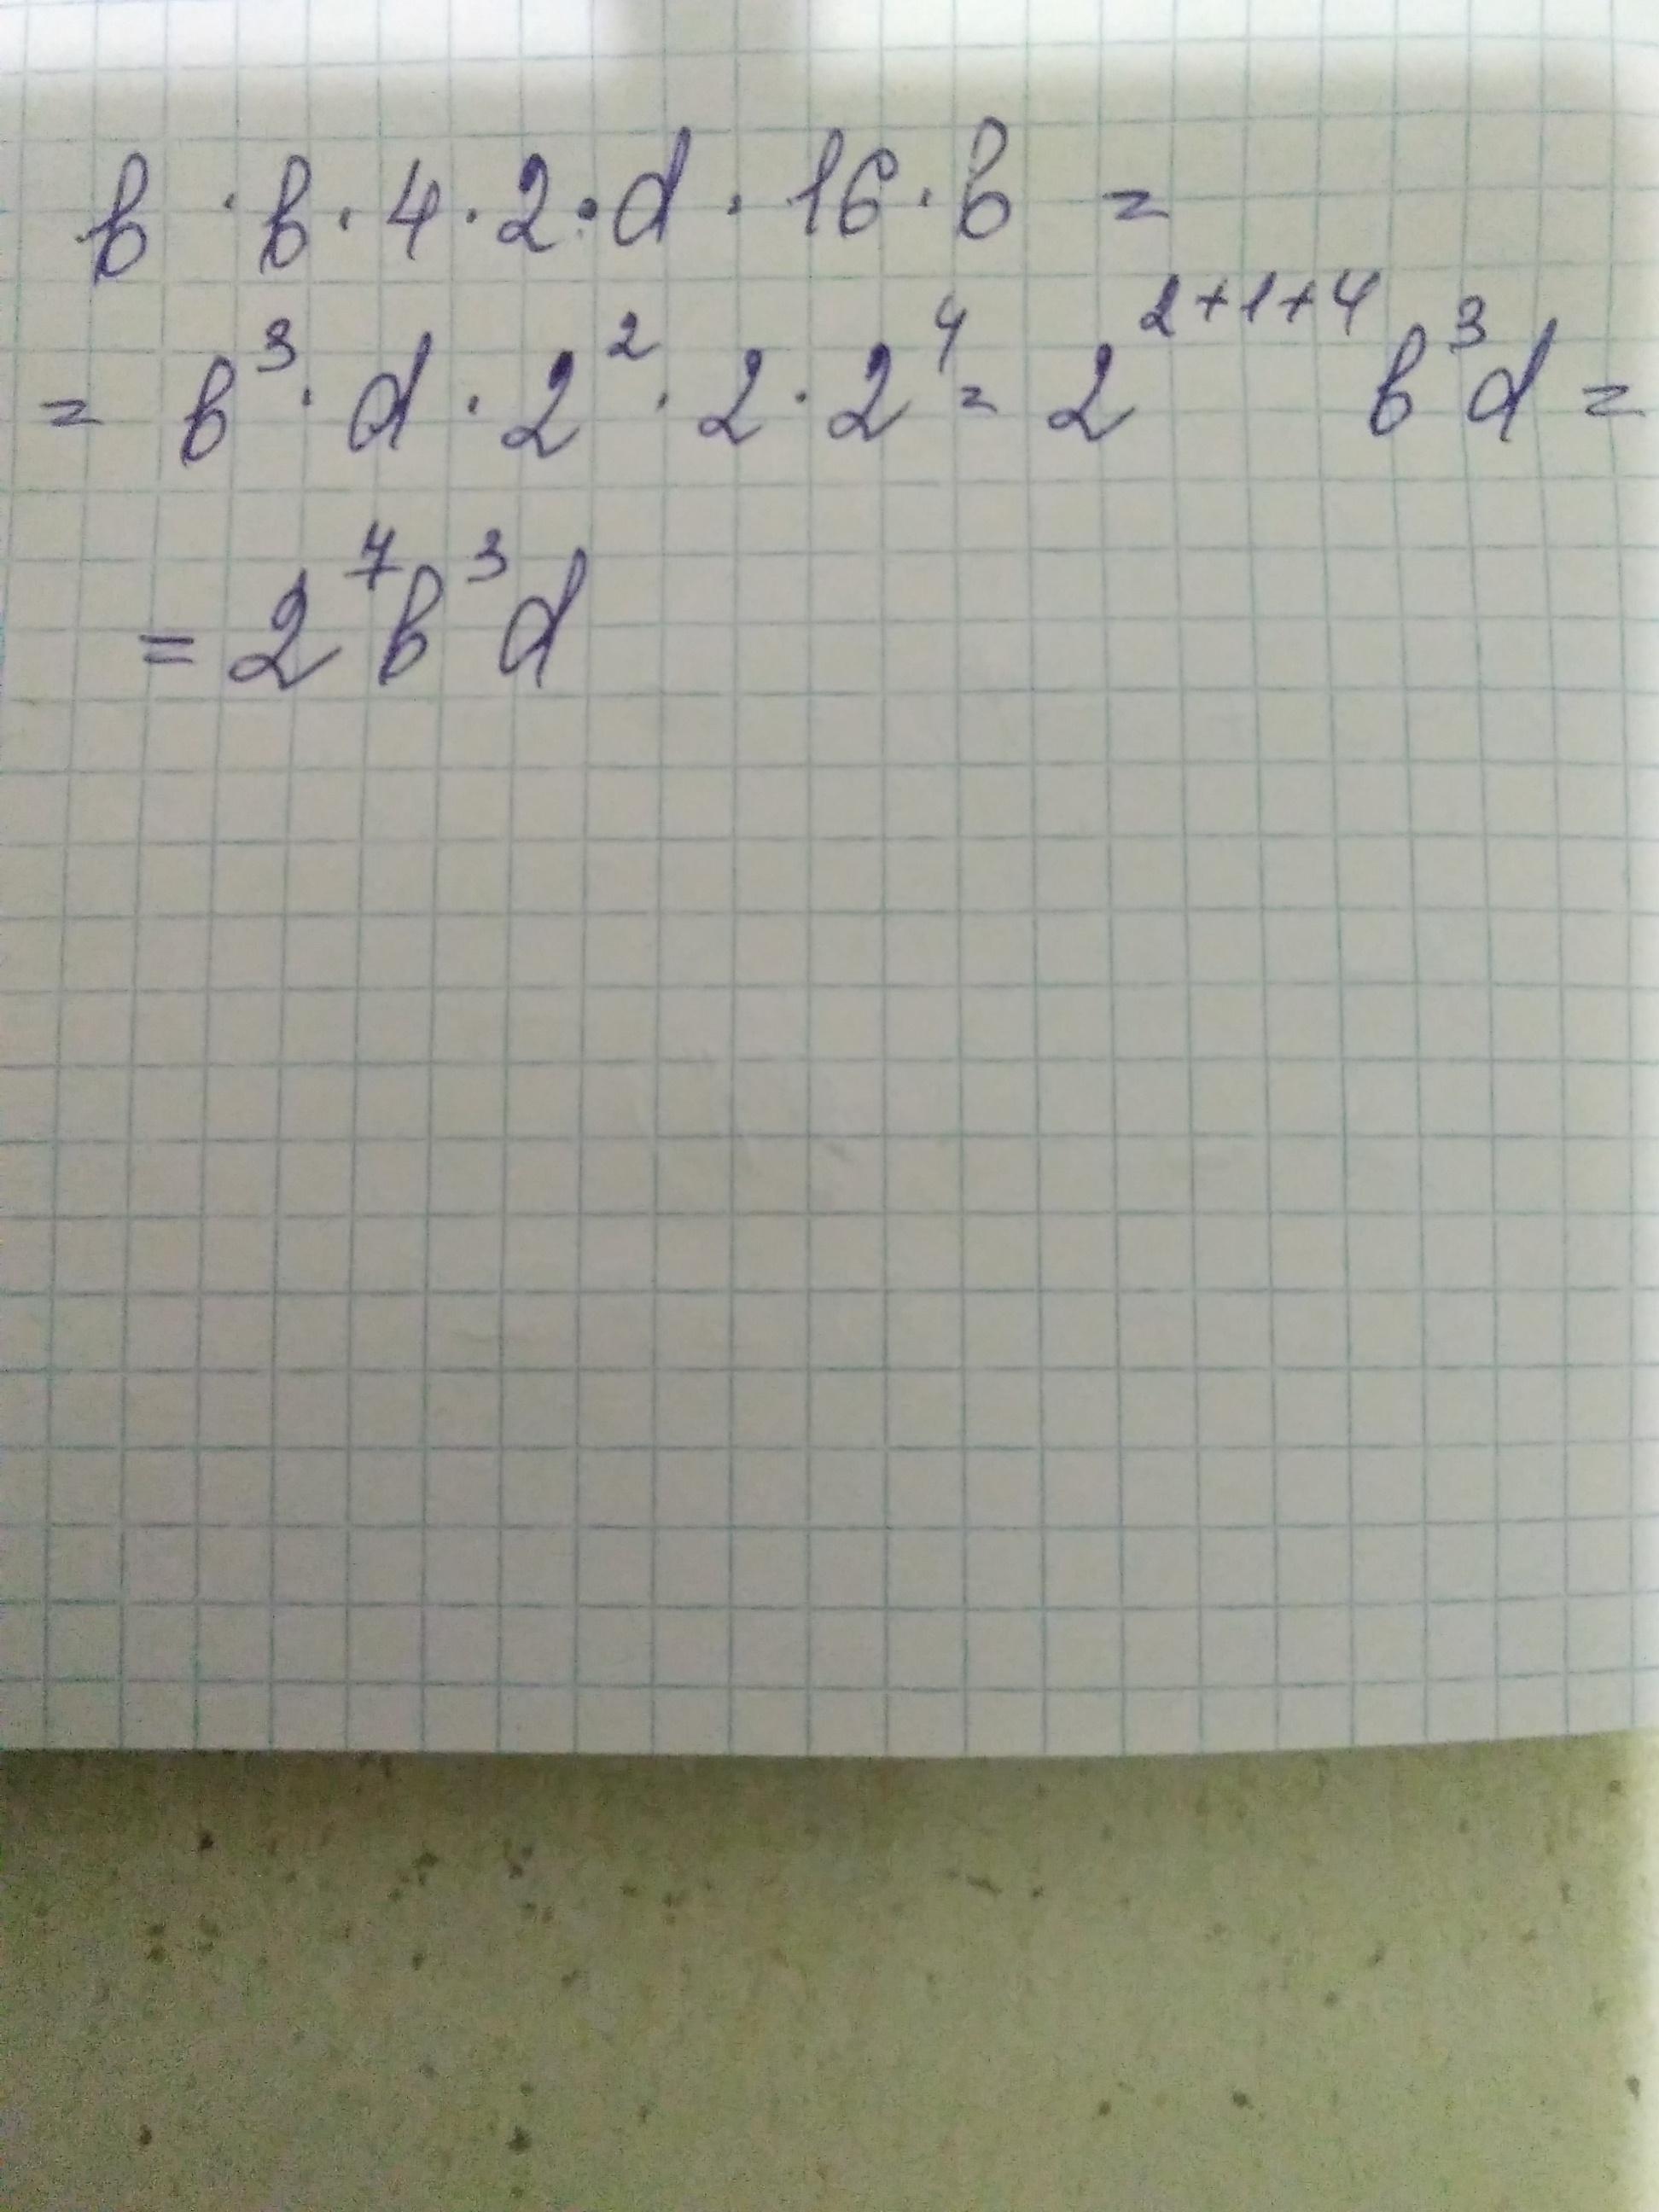 b · b · 4 · 2 · d · 16 · b =
= b³ · d · 2² · 2 · 2⁴ = 2²⁺¹⁺⁴ b³d =
= 2⁷b³d